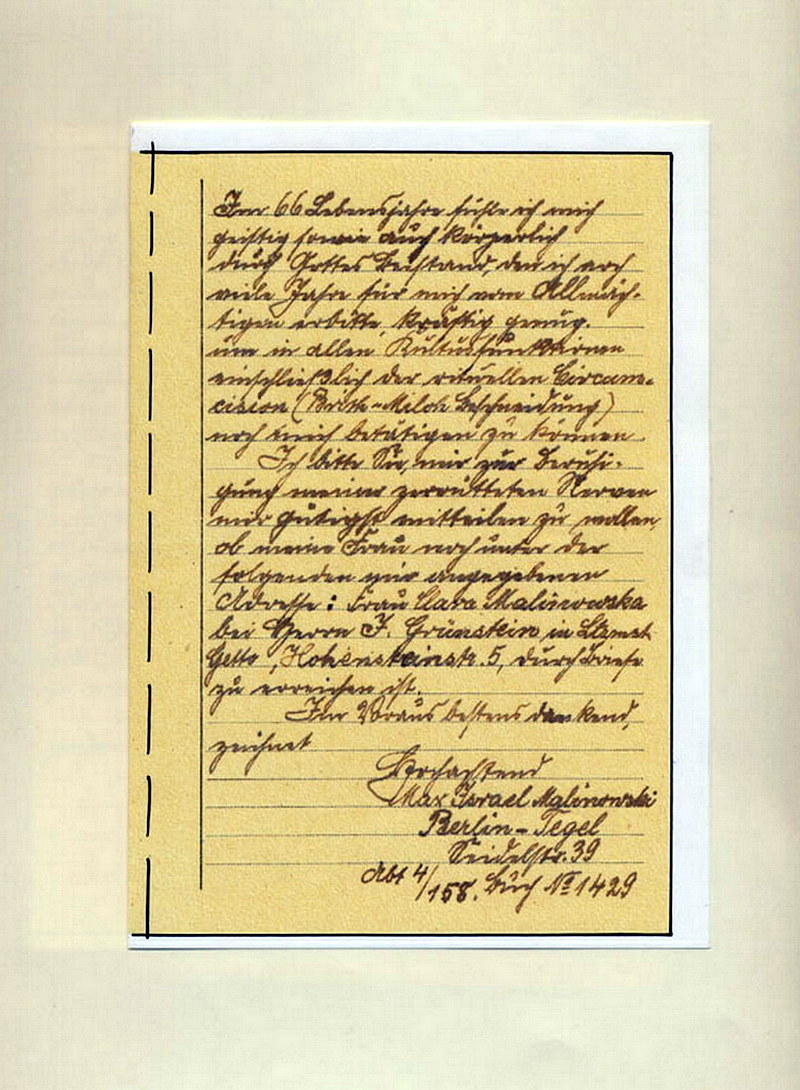 Im 66 Lebensjahre fühle ich mich
geistig sowie auch körperlich
durch Gottes Beistand, den ich noch
viele Jahre für mich vom Allmäch-
tigen erbitte, kräftig genug.
um in allen Kultusfunktionen
einschließlich der rituellen Circum-
cision (Brith-Miloh Beschneidung)
noch mich betätigen zu können.
Ich bitte Sie, mir zur Beruhi-
gung meiner zerrütteten Nerven
mir gütigst mitteilen zu wollen,
ob meine Frau noch unter der
folgenden mir angegebenen
Adresse: Frau Clara Malinowska
bei Herrn J. Grünstein, in Litzmst.
Getto, Hohensteinstr. 5, durch Briefe
zu erreichen ist.
Im Voraus bestens dankend,
zeichnet
Hochachtend
Max Israel Malinowski
Berlin-Tegel
Seidelstr. 39
Abt 4/158. Buch № 1429